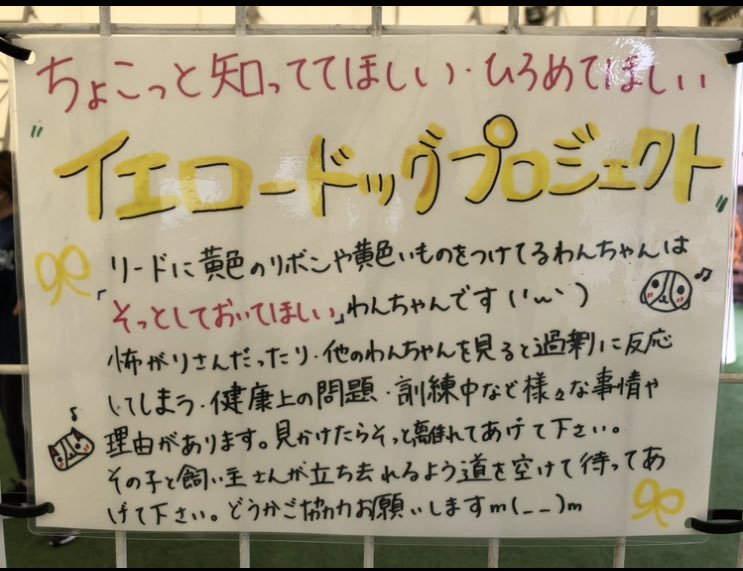 ちょこっと知っててほしい・ひろめてほしい
"イエロードッグプロジェクト"
リードに黄色のリボンや黄色いものをつけてるわんちゃんは
「そっとしておいてほしい」わんちゃんです(´ω`)
怖がりさんだったり・他のわんちゃんを見ると過剰に反応
してしまう・健康上の問題・訓練中など様々な事情や
理由があります。見かけたらそっと離れてあげて下さい。
その子と飼い主さんが立ち去れるよう道を空けて待ってあ
げて下さい。どうかご協力お願いしますm(__)m